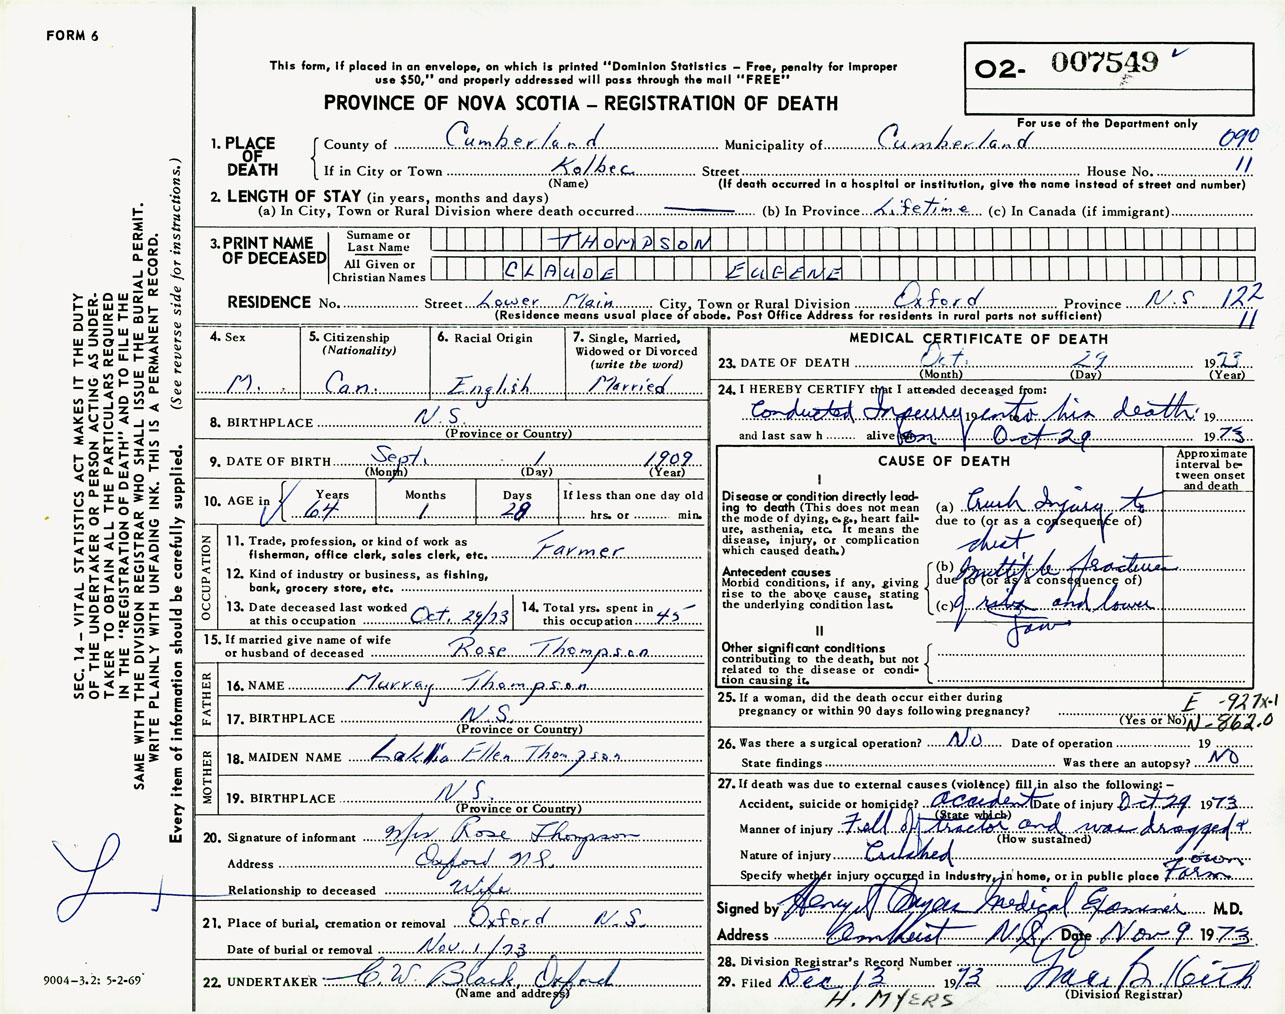 FORM 6
O2- 007549
This form, if placed in an envelope, on which is printed "Dominion Statistics – Free, penalty for improper
use $50," and properly addressed will pass through the mail "FREE"
PROVINCE OF NOVA SCOTIA – REGISTRATION OF DEATH
For use of the Department only
1. PLACE OF DEATH
County of Cumberland Municipality of Cumberland 090
If in City or Town Kolbec Street House No. 11
(Name) (If death occurred in a hospital or institution, give the name instead of street and number)
2. LENGTH OF STAY (in years, months and days)
(a) In City, Town or Rural Division where death occurred —— (b) In Province Lifetime (c) In Canada (if immigrant)
3. PRINT NAME OF DECEASED
Surname or Last Name THOMPSON
All Given or Christian Names CLAUDE EUGENE
RESIDENCE No. Street Lower Main City, Town or Rural Division Oxford Province N.S 122
(Residence means usual place of abode. Post Office Address for residents in rural parts not sufficient) 11
4. Sex M.
5. Citizenship (Nationality) Can.
6. Racial Origin English
7. Single, Married, Widowed or Divorced (write the word) Married
8. BIRTHPLACE N.S.
(Province or Country)
9. DATE OF BIRTH Sept. 1 1909
(Month) (Day) (Year)
10. AGE in Years 64 Months 1 Days 28 If less than one day old hrs. or min.
OCCUPATION
11. Trade, profession, or kind of work as
fisherman, office clerk, sales clerk, etc. Farmer
12. Kind of industry or business, as fishing,
bank, grocery store, etc.
13. Date deceased last worked
at this occupation Oct. 29/73
14. Total yrs. spent in
this occupation 45
15. If married give name of wife
or husband of deceased Rose Thompson
FATHER
16. NAME Murray Thompson
17. BIRTHPLACE N.S.
(Province or Country)
MOTHER
18. MAIDEN NAME Ellen Thompson
19. BIRTHPLACE N.S.
(Province or Country)
20. Signature of informant Mrs Rose Thompson
Address Oxford N.S.
Relationship to deceased Wife
21. Place of burial, cremation or removal Oxford N.S.
Date of burial or removal Nov. 1/73
22. UNDERTAKER C.W. Black, Oxford
(Name and address)
MEDICAL CERTIFICATE OF DEATH
23. DATE OF DEATH Oct. 29 1973
(Month) (Day) (Year)
24. I HEREBY CERTIFY that I attended deceased from:
Conducted Inquiry 19 into his death 19
and last saw h alive on Oct 29 1973
CAUSE OF DEATH
Approximate interval between onset and death
I
Disease or condition directly lead-
ing to death (This does not mean
the mode of dying, e.g., heart fail-
ure, asthenia, etc. It means the
disease, injury, or complication
which caused death.)
(a) Crush Injury to
due to (or as a consequence of)
chest
Antecedent causes
Morbid conditions, if any, giving
rise to the above cause, stating
the underlying condition last.
(b) Multiple fractures
due to (or as a consequence of)
(c) of ribs and lower
Jaw
II
Other significant conditions
contributing to the death, but not
related to the disease or condi-
tion causing it.
25. If a woman, did the death occur either during
pregnancy or within 90 days following pregnancy?
(Yes or No)
E -927x-1
N-862.0
26. Was there a surgical operation? No Date of operation 19
State findings Was there an autopsy? NO
27. If death was due to external causes (violence) fill in also the following:–
Accident, suicide or homicide? accident Date of injury Oct 29 1973
(State which)
Manner of injury Fell of tractor and was dragged +
(How sustained)
Nature of injury Crushed
Specify whether injury occurred in industry, in home, or in public place own Farm
Signed by Henry Myers Medical Examiner M.D.
Address Amherst N.S. Date Nov 9 1973
28. Division Registrar's Record Number
29. Filed Dec 13 1973 Keith
(Division Registrar)
H. MYERS
SEC. 14 – VITAL STATISTICS ACT MAKES IT THE DUTY
OF THE UNDERTAKER OR PERSON ACTING AS UNDER-
TAKER TO OBTAIN ALL THE PARTICULARS REQUIRED
IN THE "REGISTRATION OF DEATH" AND TO FILE THE
SAME WITH THE DIVISION REGISTRAR WHO SHALL ISSUE THE BURIAL PERMIT.
WRITE PLAINLY WITH UNFADING INK. THIS IS A PERMANENT RECORD.
Every item of information should be carefully supplied. (See reverse side for instructions.)
9004-3.2: 5-2-69